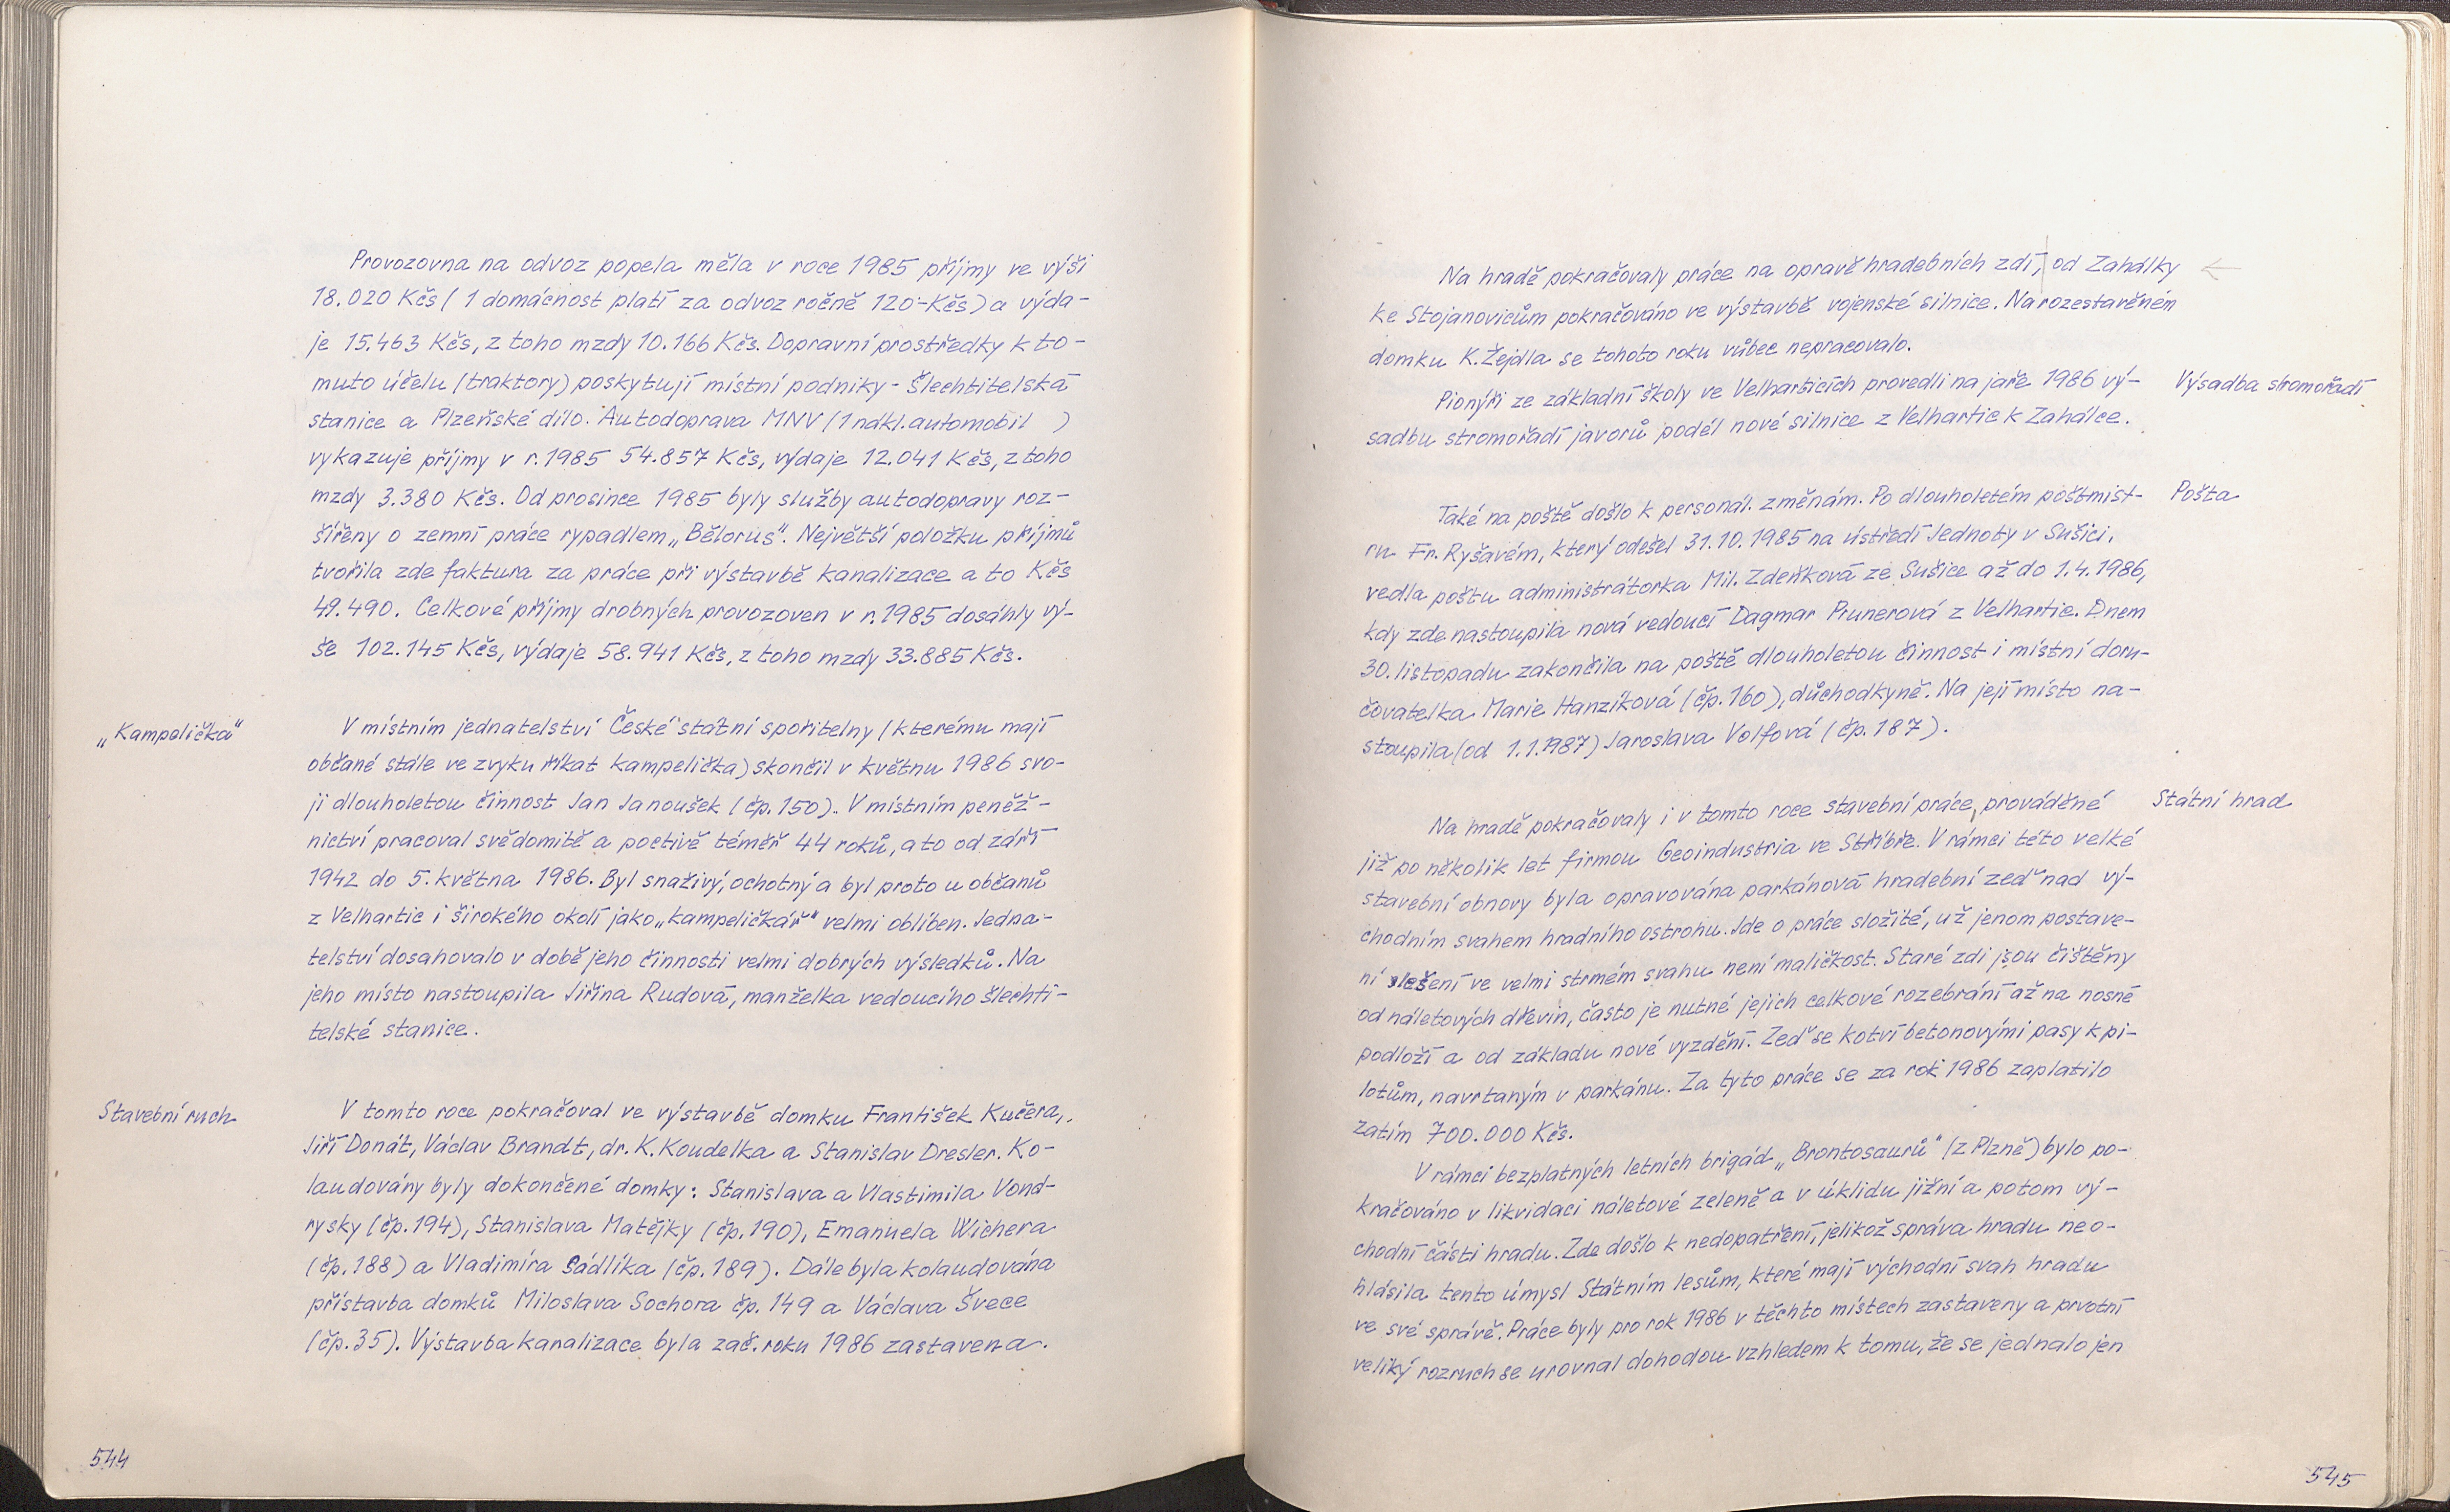 Provozovna na odvoz popela měla v roce 1985 příjmy ve výši
18.020 Kčs (1 domácnost platí za odvoz ročně 120-Kčs) a výda-
je 15.463 Kčs, z toho mzdy 10.166 Kčs. Dopravní prostředky k to-
muto účelu (traktory) poskytují místní podniky - Šlechtitelská
stanice a Plzeňské dílo. Autodoprava MNV (1 nákl. automobil )
vykazuje příjmy v r. 1985 54.857 Kčs, výdaje 12.041 Kčs, z toho
mzdy 3.380 Kčs. Od prosince 1985 byly služby autodopravy roz-
šířeny o zemní práce rypadlem „Bělorus". Největší položku příjmů
tvořila zde faktura za práce při výstavbě kanalizace a to Kčs
49.490. Celkové příjmy drobných provozoven v r. 1985 dosáhly vý-
še 102.145 Kčs, výdaje 58.941 Kčs, z toho mzdy 33.885 Kčs.
„Kampelička"
V místním jednatelství České státní spořitelny (kterému mají
občané stále ve zvyku říkat kampelička) skončil v květnu 1986 svo-
ji dlouholetou činnost Jan Janoušek (čp. 150). V místním peněž-
nictví pracoval svědomitě a poctivě téměř 44 roků, a to od září
1942 do 5. května 1986. Byl snaživý, ochotný a byl proto u občanů
z Velhartic i širokého okolí jako „kampeličkář" velmi oblíben. Jedna-
telství dosahovalo v době jeho činnosti velmi dobrých výsledků. Na
jeho místo nastoupila Jiřina Rudová, manželka vedoucího šlechti-
telské stanice.
Stavební ruch
V tomto roce pokračoval ve výstavbě domku František Kučera,
Jiří Donát, Václav Brandt, dr. K. Koudelka a Stanislav Dresler. Ko-
laudovány byly dokončené domky: Stanislava a Vlastimila Vond-
rysky (čp. 194), Stanislava Matějky (čp. 190), Emanuela Wichera
(čp. 188) a Vladimíra Sádlíka (čp. 189). Dále byla kolaudována
přístavba domků Miloslava Sochora čp. 149 a Václava Švece
(čp. 35). Výstavba kanalizace byla zač. roku 1986 zastavena.
544
Na hradě pokračovaly práce na opravě hradebních zdí, od Zahálky
ke Stojanovicům pokračováno ve výstavbě vojenské silnice. Na rozestavěném
domku K. Žejdla se tohoto roku vůbec nepracovalo.
Pionýři ze základní školy ve Velharticích provedli na jaře 1986 vý-
Výsadba stromořadí
sadbu stromořadí javorů podél nové silnice z Velhartic k Zahálce.
Také na poště došlo k personál. změnám. Po dlouholetém poštmist-
Pošta
ru Fr. Ryšavém, který odešel 31.10.1985 na ústředí Jednoty v Sušici,
vedla poštu administrátorka Mil. Zdeňková ze Sušice až do 1.4.1986,
kdy zde nastoupila nová vedoucí Dagmar Prunerová z Velhartic. Dnem
30. listopadu zakončila na poště dlouholetou činnost i místní doru-
čovatelka Marie Hanzíková (čp. 160), důchodkyně. Na její místo na-
stoupila (od 1.1.1987) Jaroslava Volfová (čp. 187).
Na hradě pokračovaly i v tomto roce stavební práce, prováděné
Státní hrad
již po několik let firmou Geoindustria ve Stříbře. V rámci této velké
stavební obnovy byla opravována parkánová hradební zeď nad vý-
chodním svahem hradního ostrohu. Jde o práce složité, už jenom postave-
ní lešení ve velmi strmém svahu není maličkost. Staré zdi jsou čištěny
od náletových dřevin, často je nutné jejich celkové rozebrání až na nosné
podloží a od základu nové vyzdění. Zeď se kotví betonovými pasy k pi-
lotům, navrtaným v parkánu. Za tyto práce se za rok 1986 zaplatilo
zatím 700.000 Kčs.
V rámci bezplatných letních brigád „Brontosaurů" (z Plzně) bylo po-
kračováno v likvidaci náletové zeleně a v úklidu jižní a potom vý-
chodní části hradu. Zde došlo k nedopatření, jelikož správa hradu neo-
hlásila tento úmysl Státním lesům, které mají východní svah hradu
ve své správě. Práce byly pro rok 1986 v těchto místech zastaveny a prvotní
veliký rozruch se urovnal dohodou vzhledem k tomu, že se jednalo jen
545